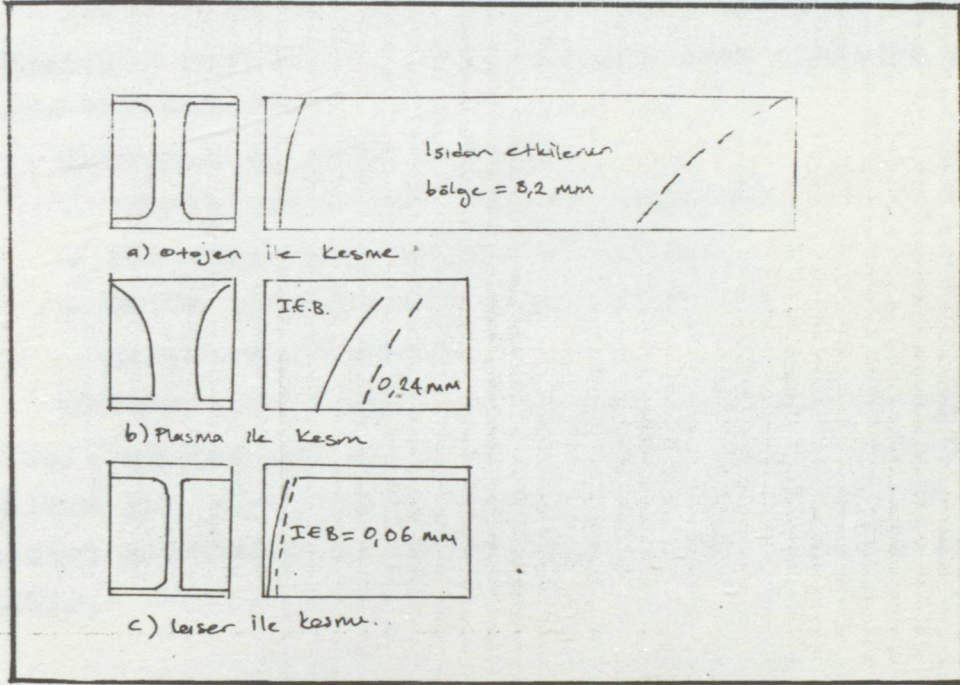 Isıdan etkilenen
bölge = 3,2 mm
a) Otojen ile Kesme
I.E.B.
0,24 mm
b) Plasma ile Kesm
IEB = 0,06 mm
c) laser ile kesme.